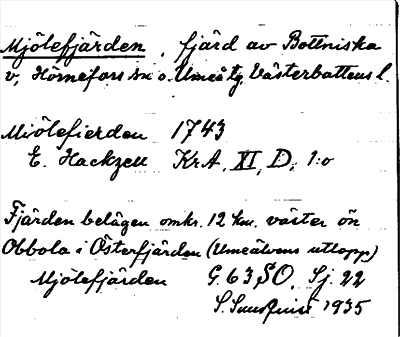 Mjölefjärden, fjärd av Bottniska
v, Hörnefors sn o. Umeå tg. Västerbottens l.
Miölefierden 1743
E. Hackzell KrA, XI, D, 1:o
Fjärden belägen omkr. 12 km. väster ön
Obbola i Österfjärden (Umeälvens utlopp)
Mjölefjärden G. 63 SO. Sj. 22
S. Sundquist 1935